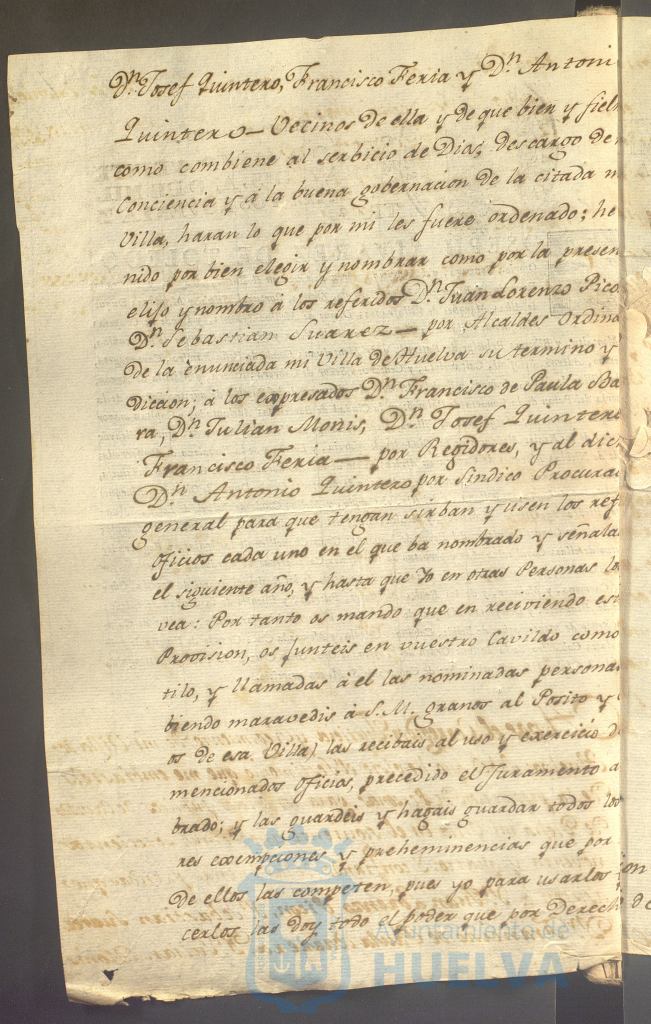 Dn. Josef Quintero, Francisco Feria y Dn. Antoni
Quintero— Vecinos de ella y de que bien y fiel
como combiene al serbicio de Dios, descargo de
Conciencia y á la buena gobernacion de la citada
Villa, haran lo que por mi les fuere ordenado; he
nido por bien elegir y nombrar como por la presen
elijo y nombro á los referidos Dn. Juan Lorenzo Pico
Dn. Sebastian Suarez— por Alcaldes Ordina
de la enunciada mi Villa de Huelva su termino y
diccion; á los expresados Dn. Francisco de Paula
ra, Dn. Julian Monis, Dn. Josef Quinter
Francisco Feria— por Regidores, y al dic
Dn. Antonio Quintero por Sindico Procura
general para que tengan sirban y usen los ref
oficios cada uno en el que ba nombrado y señala
el siguiente año, y hasta que Yo en otras Personas lo
vea: Por tanto os mando que en reciviendo est
Provision, os Junteis en vuestro Cavildo como
tilo, y llamadas á él las nominadas persona
biendo maravedis á S.M. granos al Posito y
os de esa Villa) las recibais al uso y exercicio d
mencionados Oficios, precedido el Juramento a
brado; y las guardeis y hagais guardar todos los
res exempciones y preheminencias que por
de ellos las competen, pues yo para usarlos
cerlos las doy todo el poder que por Derech
Ayuntamiento de
HUELVA